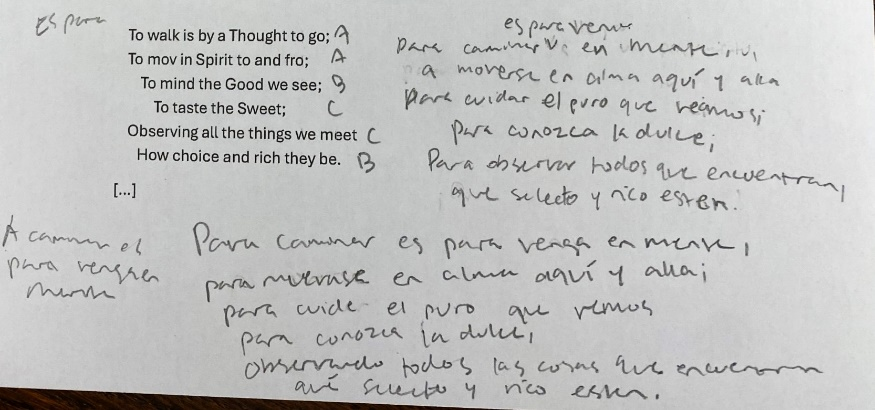 Es para
To walk is by a Thought to go; A
To mov in Spirit to and fro; A
To mind the Good we see; B
To taste the Sweet; C
Observing all the things we meet C
How choice and rich they be. B
[...]
es para venir
Para caminar en mente,
a moverse en alma aquí y alla
para cuidar el puro que veamos;
para conozca la dulce;
Para observar todos que encuentran,
que selecto y rico esten.
A caminar el
para venga en
mente
Para caminar es para venga en mente,
para muevase en alma aquí y alla;
para cuide el puro que vemos
para conozca la dulce,
observando todos las cosas que encuentran
qué selecto y rico esten.